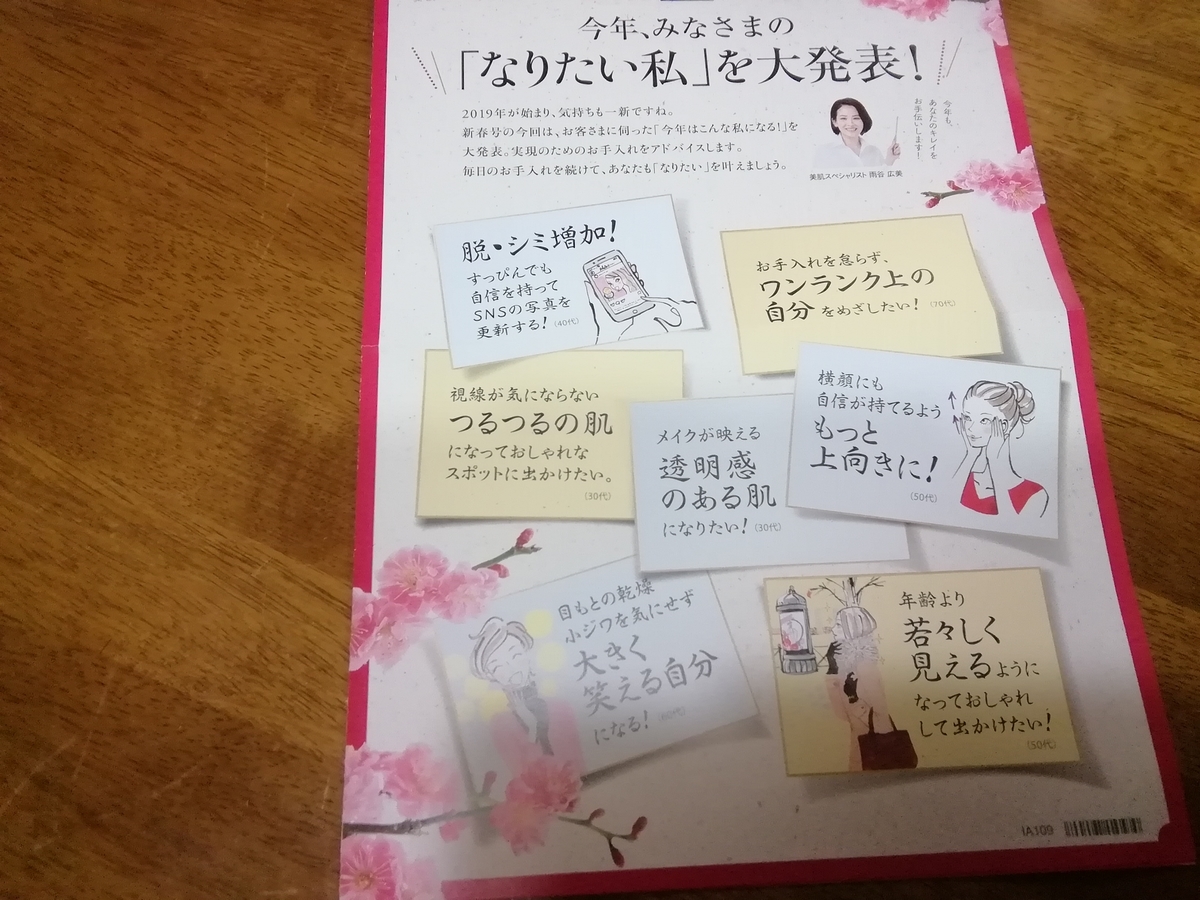 今年、みなさまの
「なりたい私」を大発表!
2019年が始まり、気持ちも一新ですね。
新春号の今回は、お客さまに伺った「今年はこんな私になる!」を
大発表。実現のためのお手入れをアドバイスします。
毎日のお手入れを続けて、あなたも「なりたい」を叶えましょう。
今年も、
あなたのキレイを
お手伝いします!
美肌スペシャリスト 雨谷 広美
脱・シミ増加!
すっぴんでも
自信を持って
SNSの写真を
更新する!(40代)
お手入れを怠らず、
ワンランク上の
自分をめざしたい!(70代)
視線が気にならない
つるつるの肌
になっておしゃれな
スポットに出かけたい。
(30代)
メイクが映える
透明感
のある肌
になりたい!(30代)
横顔にも
自信が持てるよう
もっと
上向きに!
(50代)
目もとの乾燥
小ジワを気にせず
大きく
笑える自分
になる!(60代)
年齢より
若々しく
見えるように
なっておしゃれ
して出かけたい!
(50代)
IA109